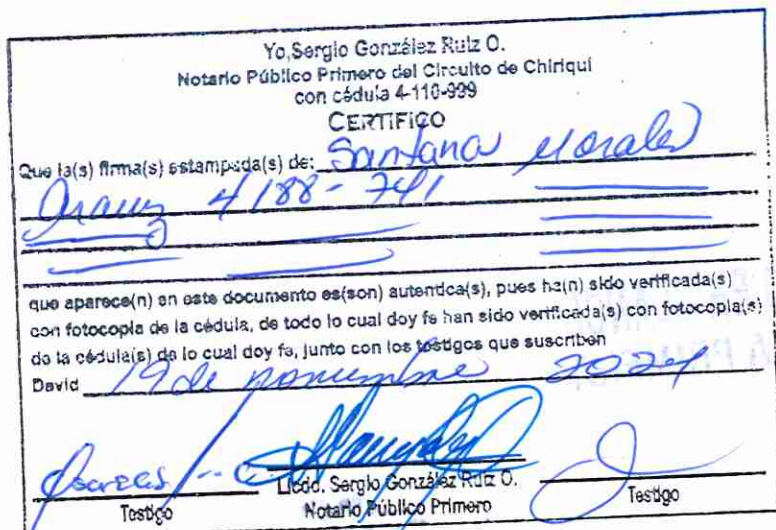 Yo, Sergio González Ruiz O.
Notario Público Primero del Circuito de Chiriquí
con cédula 4-110-999
CERTIFICO
Que la(s) firma(s) estampada(s) de: Santana Morales
Arauz 4/188-741
que aparece(n) en este documento es(son) autentica(s), pues ha(n) sido verificada(s)
con fotocopia de la cédula, de todo lo cual doy fe han sido verificada(s) con fotocopia(s)
de la cédula(s) de lo cual doy fe, junto con los testigos que suscriben
David 19 de noviembre 2024
Licdo. Sergio González Ruiz O.
Testigo Notario Público Primero Testigo